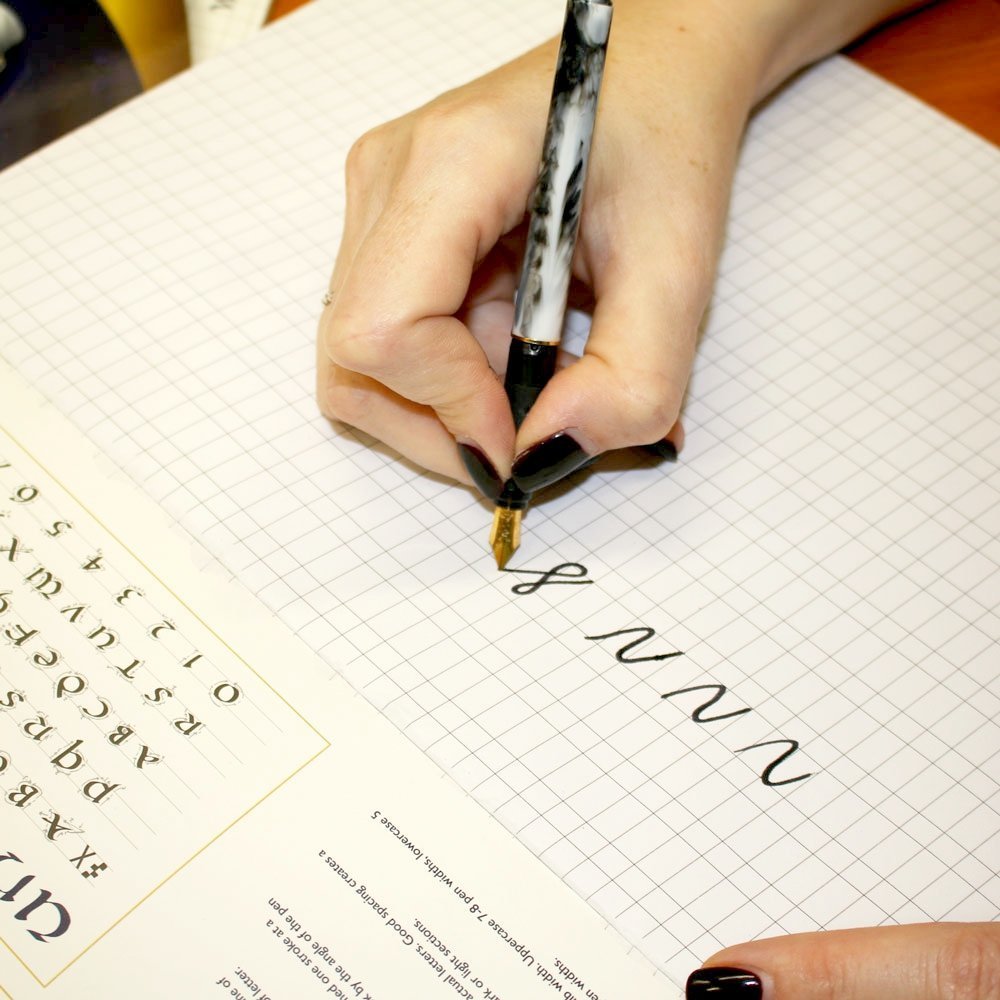 Un
EX
A B
P Q R S
A B C D E F
R S T U V W X
0 1 2 3 4 5 6
one of
of letter.
one stroke at a
by the angle of the pen
actual letters. Good spacing creates a
or light sections.
width. Uppercase 7-8 pen widths, lowercase 5
pen widths.